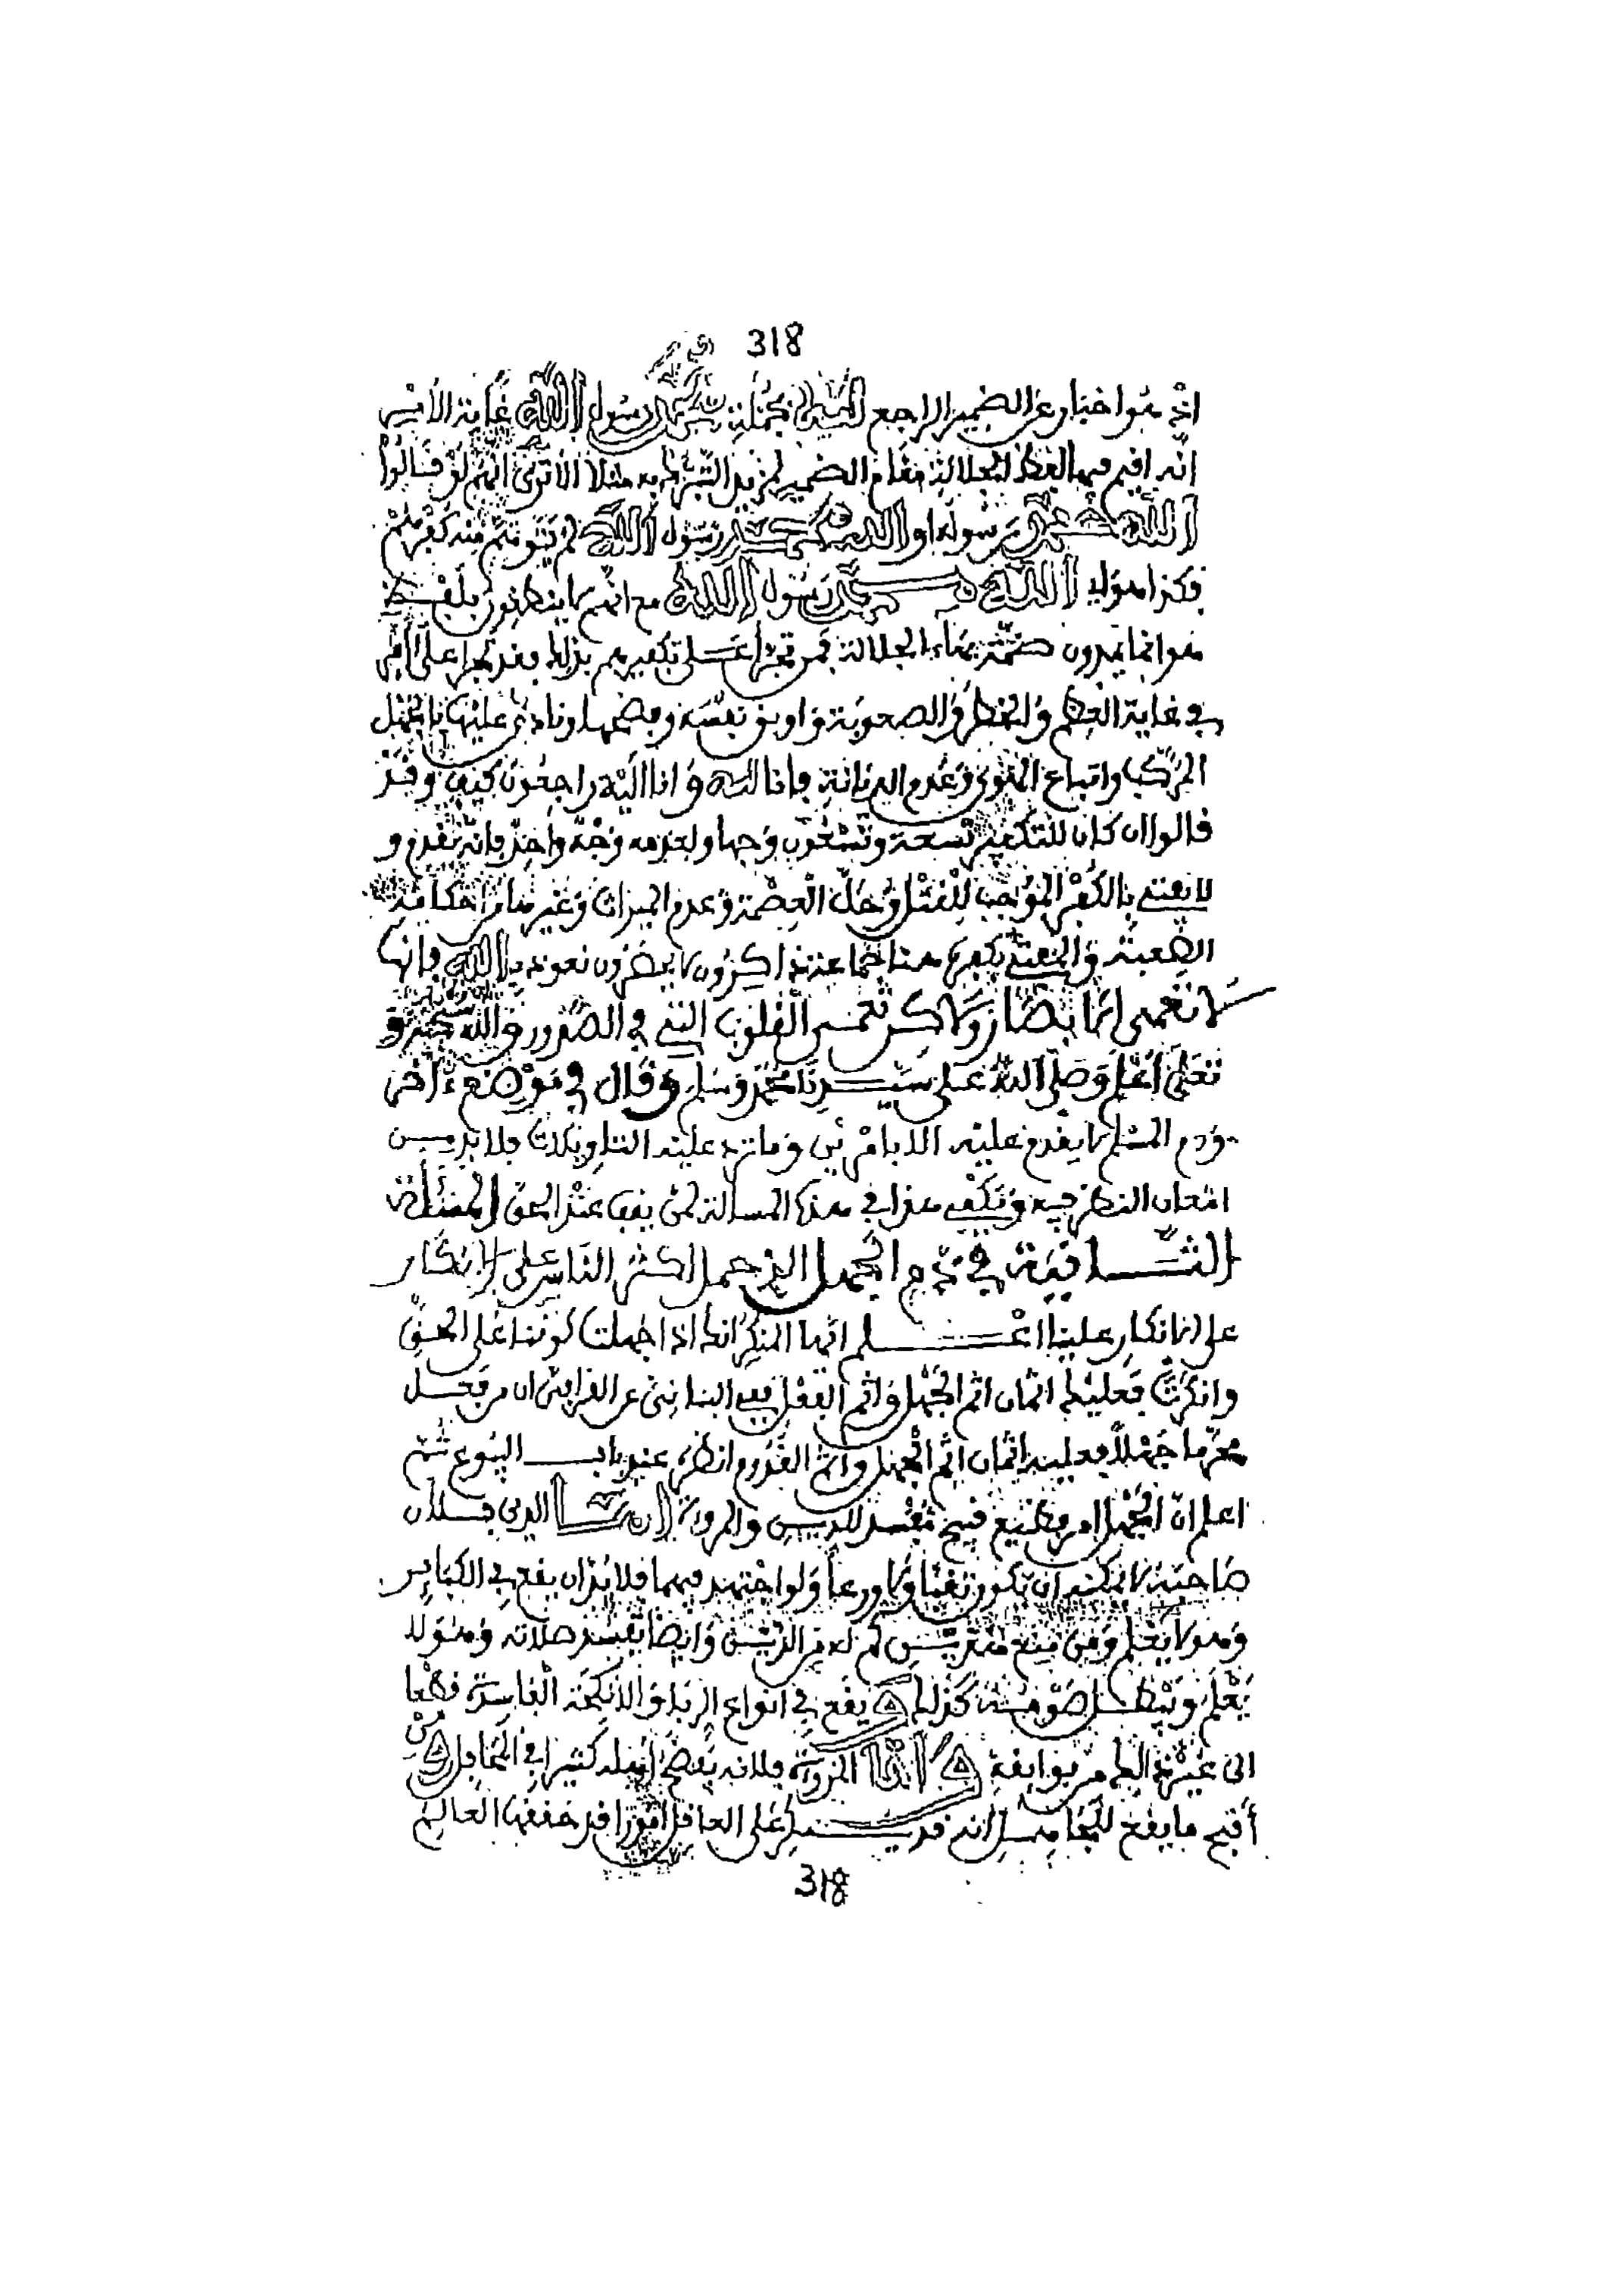 318
اذ هو اخبار عن الضمير الراجع لله بجملة محمد رسول الله غاية الامر
انه اقيم فيها لفظ الجلالة مقام الضمير لمزيد التبرك به مثلا الا ترى انهم لو قالوا
الله محمد رسوله او الله محمد رسول الله لم يتوهم منه كفرهم
فكذا هو له الله محمد رسول الله مع انهم لا ينطقون بلفظ
هو انما يمدون ضمة هاء الجلالة فمن تجرأ على تكفيرهم بذلك فقد تجرأ على امر
في غاية العظم والخطر والصعوبة واوبق نفسه وفضحها ونادى عليها بالجهل
المركب واتباع الهوى وعدم الديانة فانا لله وانا اليه راجعون كيف وقد
قالوا ان كان للتكفير تسعة وتسعون وجها ولعدمه وجه واحد فانه يقدم و
لا يفتى بالكفر الموجب للقتل وحل العصمة وعدم الميراث وغيرها من احكامه
الصعبة والمفتى بكفر هنا عند ذاكرون لا يضرون نعوذ بالله فانها
لا تعمى الابصار ولاكن تعمى القلوب التي في الصدور والله سبحانه و
تعلى اعلم وصلى الله على سيدنا محمد وسلم وقال في موضع ءاخر
ودم المسلم لا يقدم عليه الا بامر بين وما ترد عليه التاويلات فلا بد من
امعان النظر فيه ويكفى هذا في هذه المسالة لمن يقف عند الحق المسألة
الثانية في ذم الجهل الذي حمل اكثر الناس على الانكار
على الانكار علينا اعلم ايها المنكر انك اذا جهلت كوننا على الحق
وانكرت فعليك اثمان اثم الجهل واثم الفعل ففي البناني عن القرافي ان من فعل
محرما جهلا فعليه اثمان اثم الجهل واثم القدوم انظره عند باب البيوع ثم
اعلم ان الجهل امر فظيع قبيح مفسد للدين والمروءة اما الدين فلان
صاحبه لا يمكنه ان يكون تقيا ولا ورعا ولو اجتهد فيهما فلا بد ان يقع في الكبائر
وهو لا يعلم ومن منع لم له من الدين وايضا تفسد صلاته وهو لا
يعلم ويبطل صومه كذلك ويقع في انواع الربا والانكحة الفاسدة قطعا
الى غير ذلك من بوائقه واما المروءة فلانه يفضح اهله كثيرا في المحافل ومن
أقبح ما يقع للجاهل انه قد ينكر على العاقل امورا قد حققها العالم
318